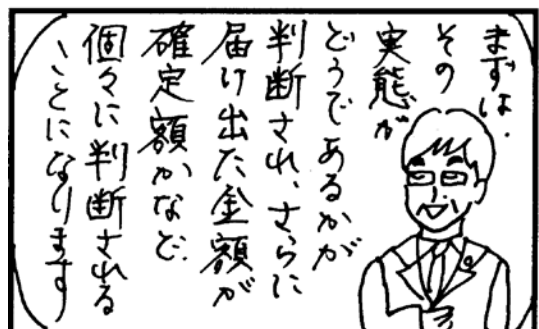 まずは、
その
実態が
どうであるかが
判断され、さらに
届け出た金額が
確定額かなど、
個々に判断される
ことになります